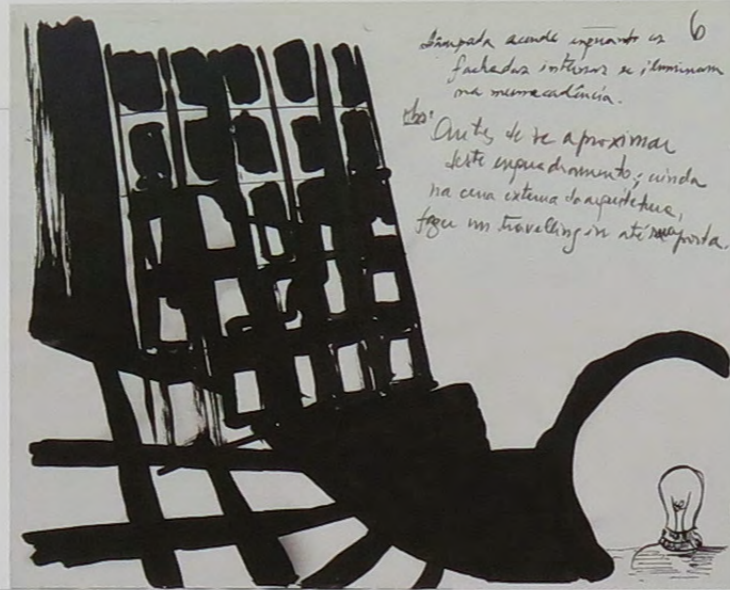 6
Lâmpada acende enquanto as
fachadas internas se iluminam
na mesma cadência.
obs: Antes de se aproximar
deste enquadramento, ainda
na cena externa da arquitetura,
fazer um travelling in até porta.